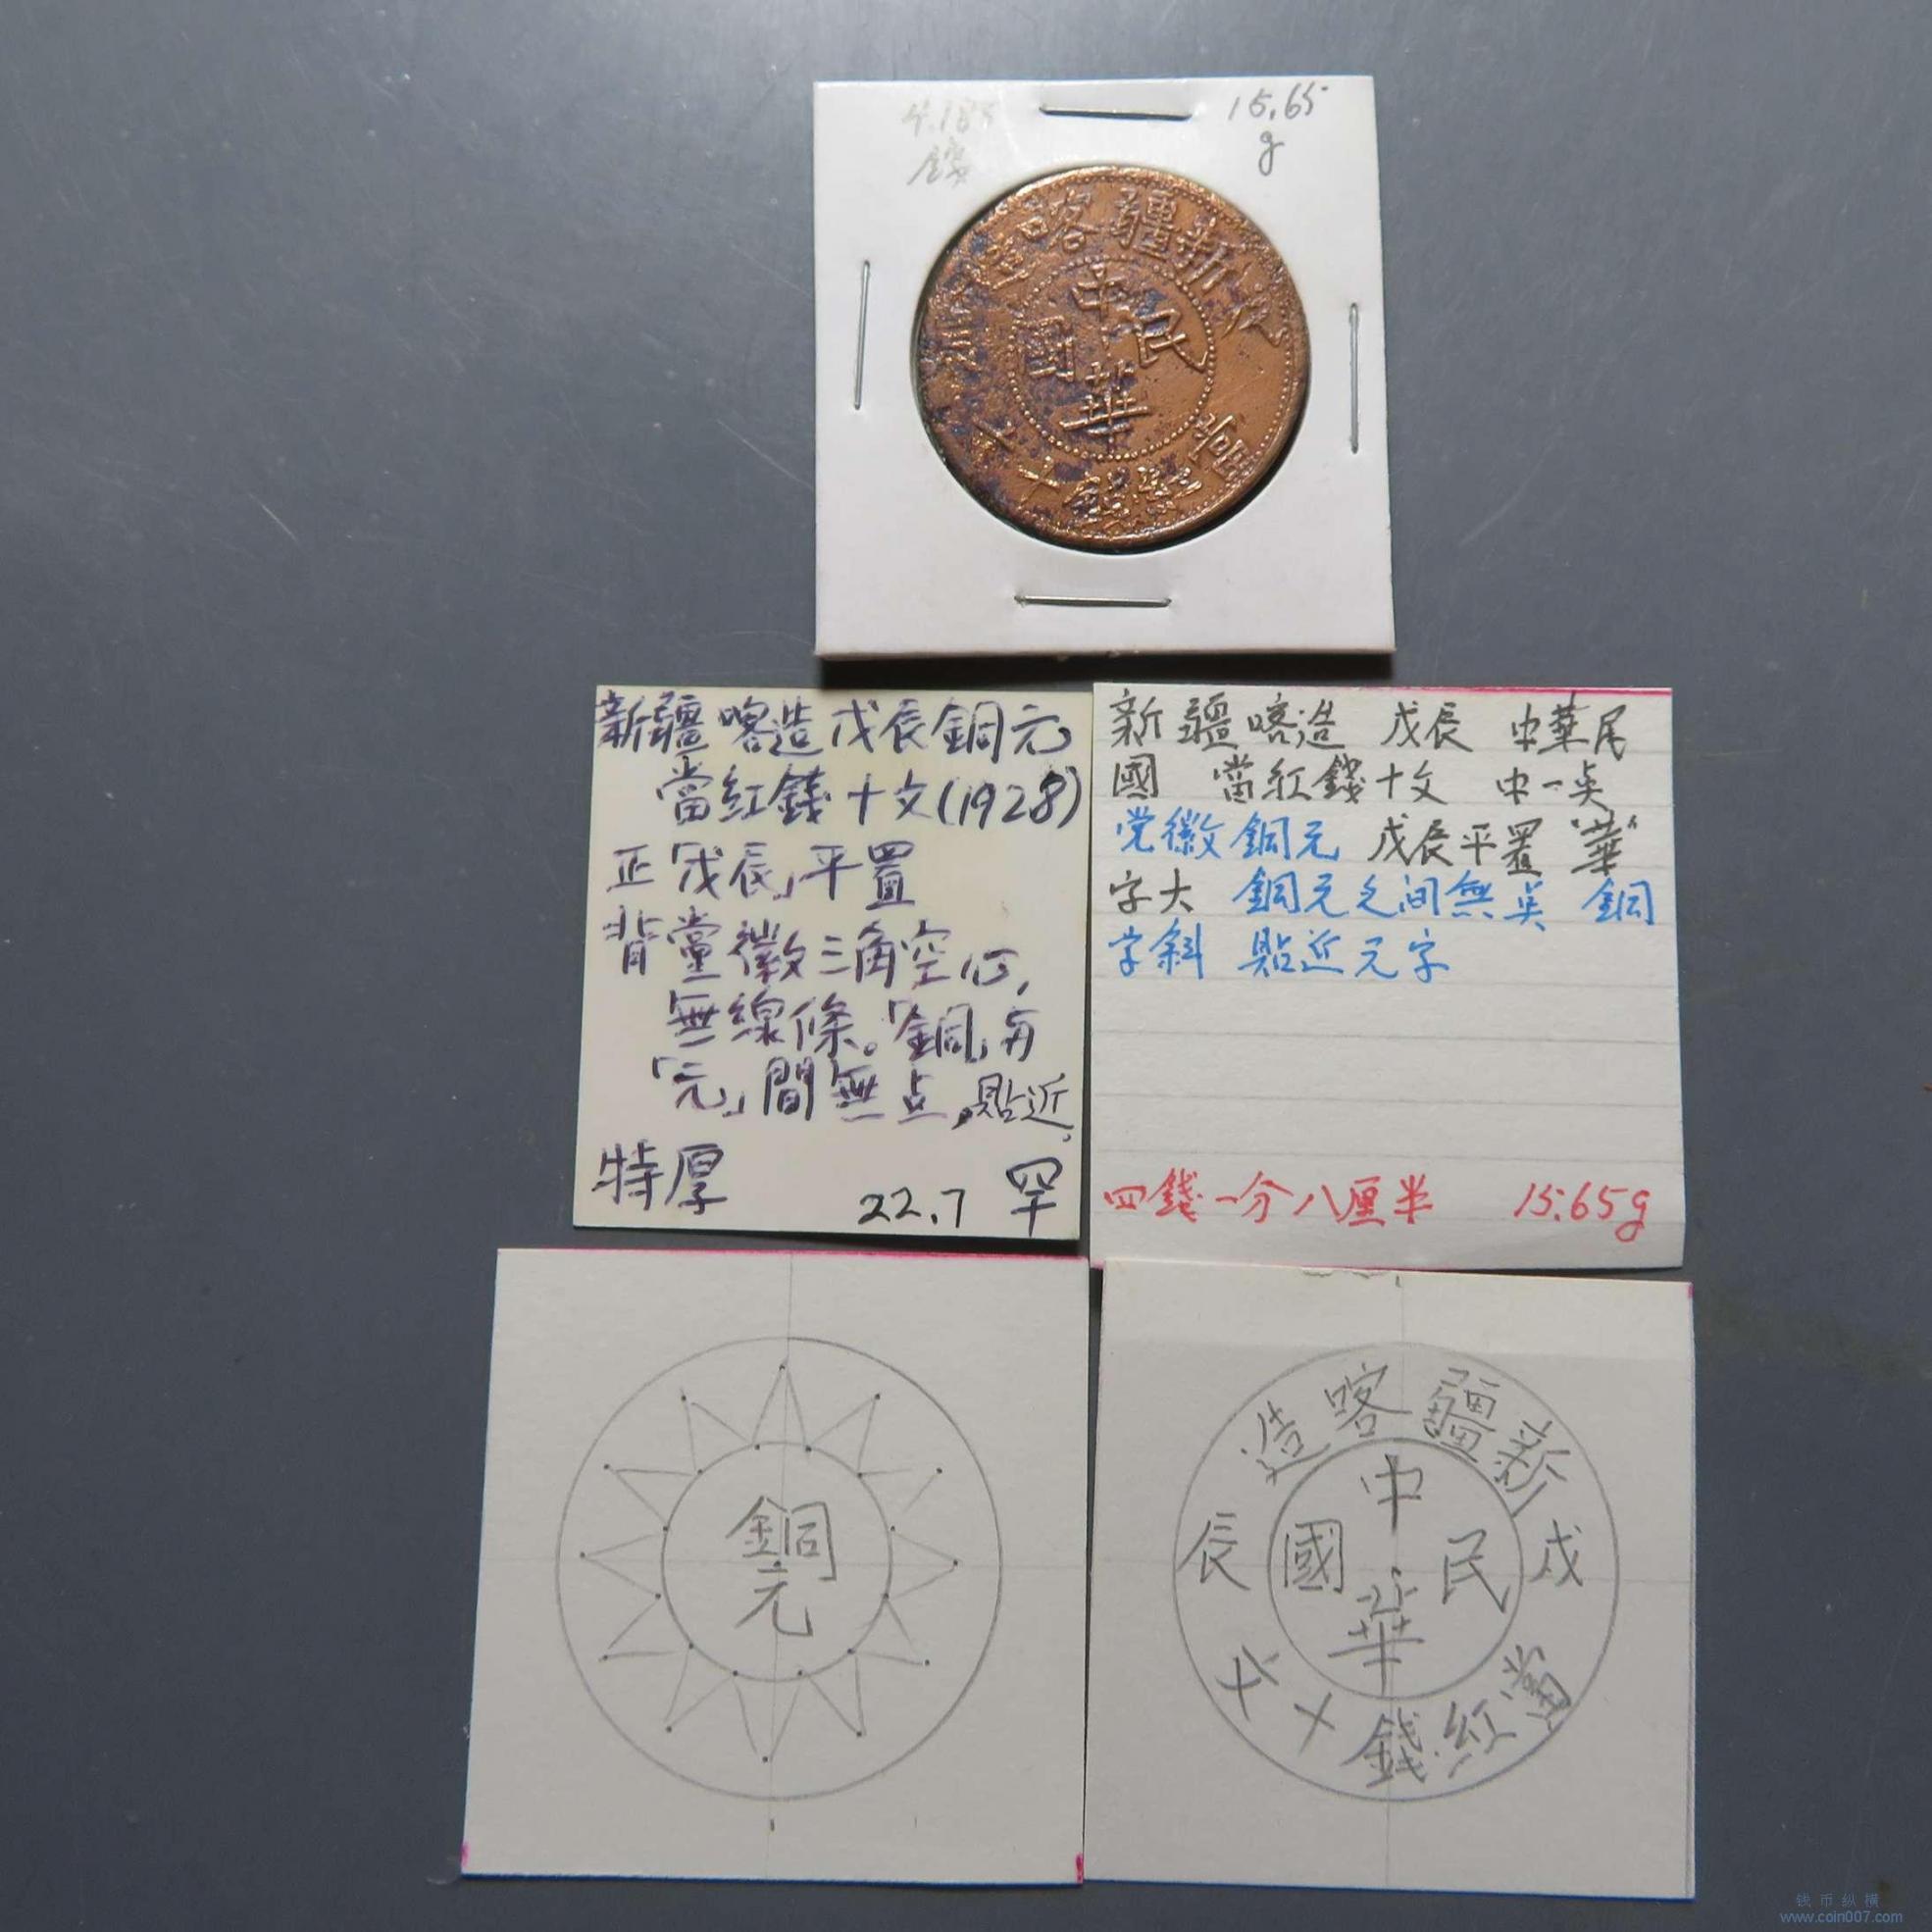 4.185
錢
15.65
g
新疆喀造
戊辰
中華
民國
當紅錢十文
新疆喀造戊辰銅元
當紅錢十文(1928)
正「戊辰」平置
背黨徽三角空心,
無線條。「銅」与
「元」間無点,貼近。
特厚 22.7 罕
新疆喀造 戊辰 中華民
國 當紅錢十文 中一点
党徽銅元 戊辰平置 "華"
字大 銅元之间無点 銅
字斜 貼近元字
四錢一分八厘半 15.65g
銅
元
新疆喀造
戊辰
中華
民國
當紅錢十文
钱币纵横
www.coin007.com